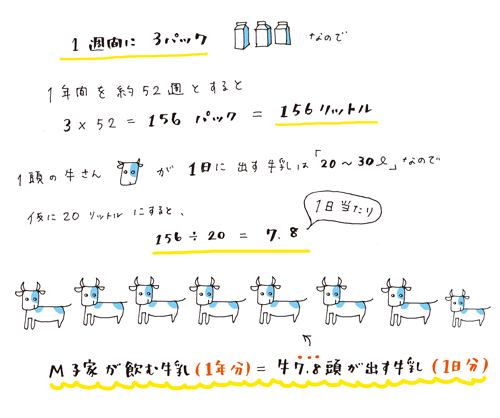 1週間に 3パック なので
1年間を約52週とすると
3×52 = 156 パック = 156リットル
1頭の牛さん が 1日に出す牛乳は「20〜30ℓ」なので
仮に20リットルにすると、
1日当たり
156÷20 = 7.8
M子家が飲む牛乳(1年分)=牛7.8頭が出す牛乳(1日分)